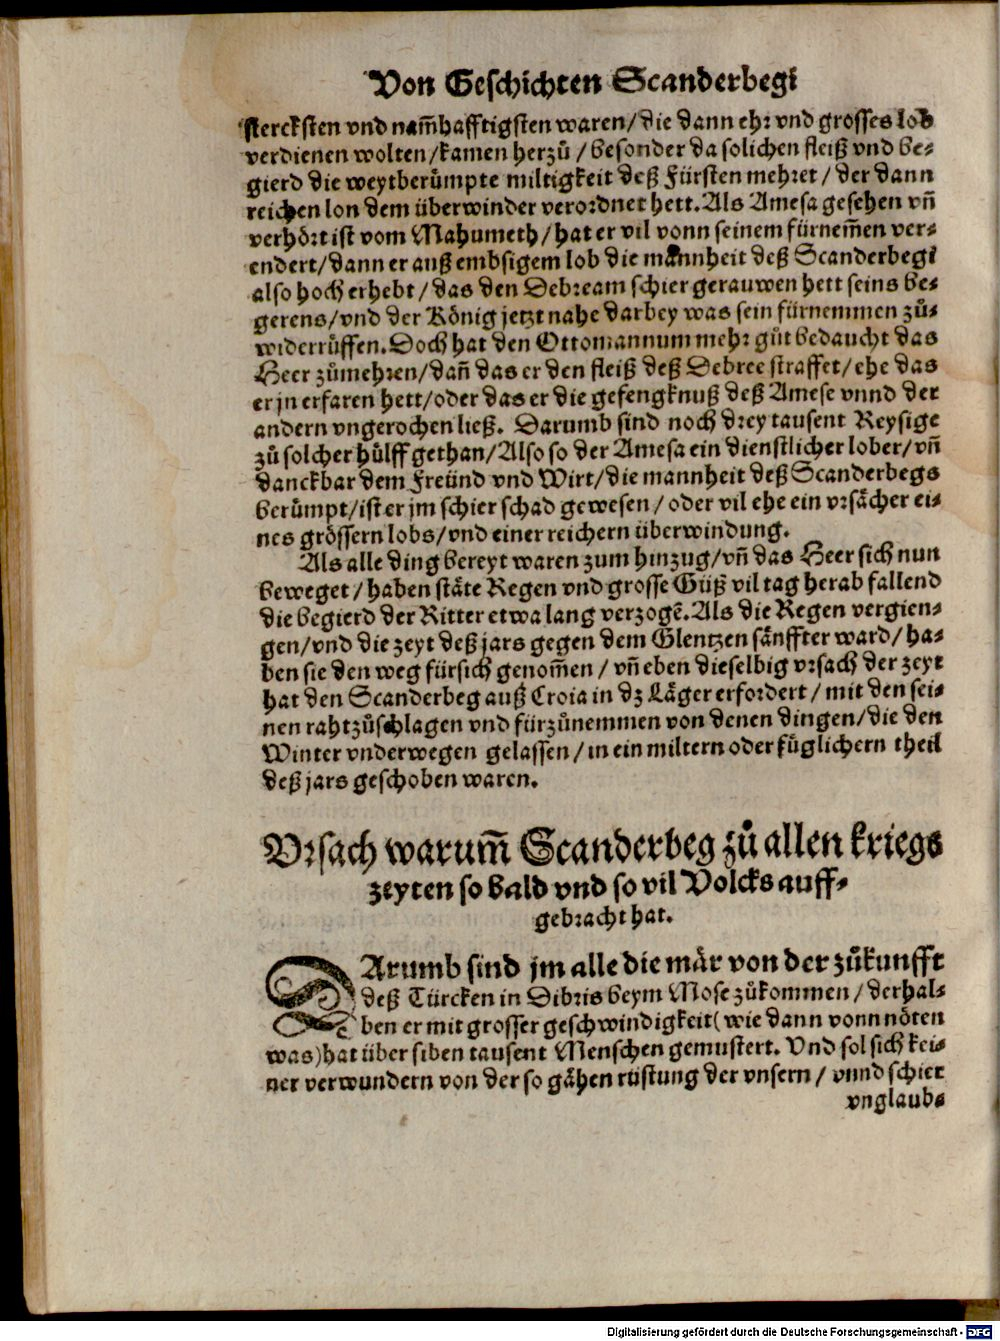 Von Geschichten Scanderbegi
stercksten vnd nam̄hafftigsten waren/die dann ehr vnd grosses lob
verdienen wolten/kamen herzů/besonder da solichen fleiß vnd be-
gierd die weytberůmpte miltigkeit deß Fürsten mehret/der dann
reichen lon dem überwinder verordnet hett. Als Amesa gesehen vñ
verhört ist vom Mahumeth/hat er vil vonn seinem fürnem̄en ver-
endert/dann er auß embsigem lob die mannheit deß Scanderbegi
also hoch erhebt/das den Sebream schier gerauwen hett seins be-
gerens/vnd der König jetzt nahe darbey was sein fürnemmen zů-
widerrůffen. Doch hat den Ottomannum mehr gůt bedaucht das
Heer zůmehren/dañ das er den fleiß deß Sebree straffet/ehe das
er jn erfaren hett/oder das er die gefengknuß deß Amese vnnd der
andern vngerochen ließ. Darumb sind noch drey tausent Reysige
zů solcher hülff gethan/Also so der Amesa ein dienstlicher lober/vñ
danckbar dem Freünd vnd Wirt/die mannheit deß Scanderbegs
berůmpt/ist er jm schier schad gewesen/oder vil ehe ein vrsächer ei-
nes grössern lobs/vnd einer reichern überwindung.
Als alle ding bereyt waren zum hinzug/vñ das Heer sich nun
beweget/haben stäte Regen vnd grosse Güß vil tag herab fallend
die begierd der Ritter etwa lang verzogē. Als die Regen vergien-
gen/vnd die zeyt deß jars gegen dem Glentzen sänffter ward/ha-
ben sie den weg fürsich genom̄en/vñ eben dieselbig vrsach der zeyt
hat den Scanderbeg auß Croia in dz Läger erfordert/mit den sei-
nen rahtzůschlagen vnd fürzůnemmen von denen dingen/die den
Winter vnderwegen gelassen/in ein miltern oder fůglichern theil
deß jars geschoben waren.
Vrsach warum̄ Scanderbeg zů allen kriegs
zeyten so bald vnd so vil Volcks auff-
gebracht hat.
DArumb sind jm alle die mär von der zůkunfft
deß Türcken in Dibris beym Mose zůkommen/derhal-
ben er mit grosser geschwindigkeit(wie dann vonn nöten
was)hat über siben tausent Menschen gemustert. Vnd sol sich kei-
ner verwundern von der so gähen rüstung der vnsern/vnnd schier
vnglaub-
Digitalisierung gefördert durch die Deutsche Forschungsgemeinschaft - DFG